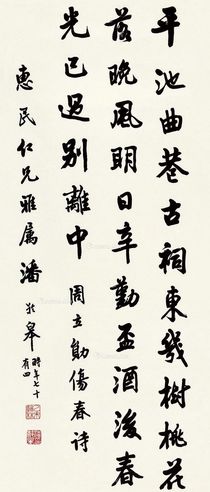 平池曲巷古祠東幾樹桃花
落晚風明日辛勤盃酒後春
光已過別離中 周立勛傷春詩
惠民仁兄雅属 潘龄皋 時年七十有四